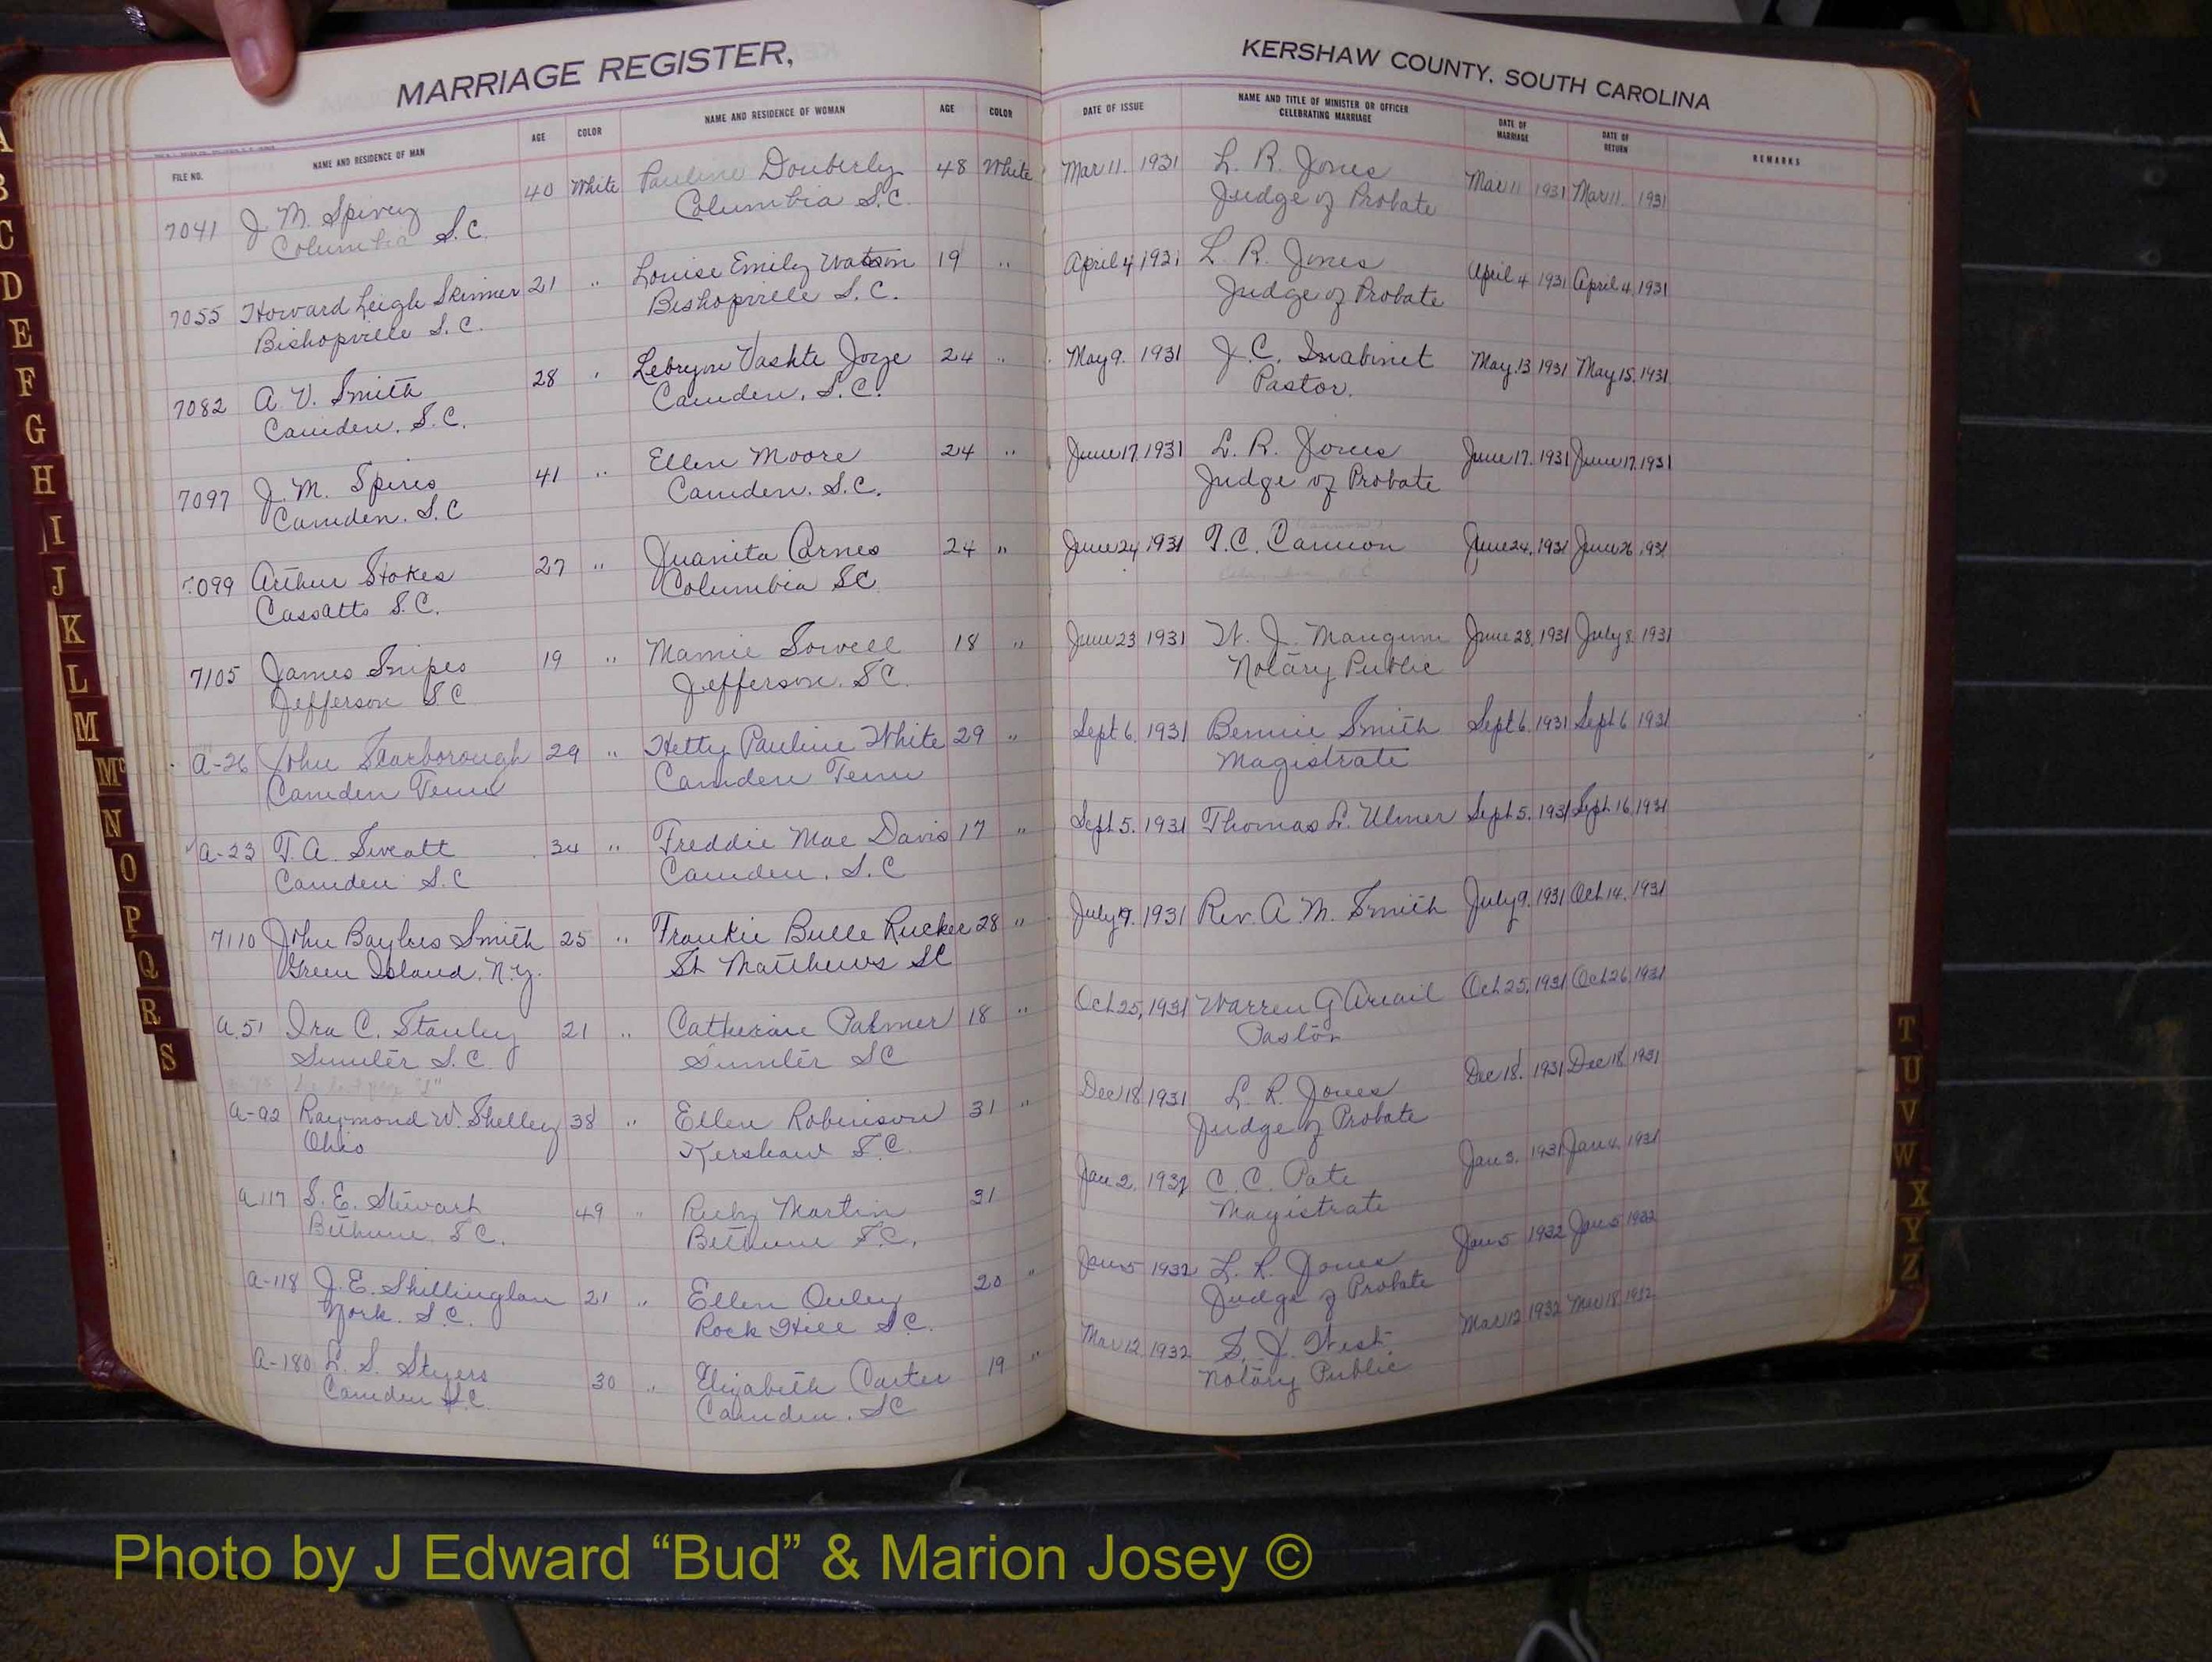 MARRIAGE REGISTER,
KERSHAW COUNTY, SOUTH CAROLINA
FILE NO. NAME AND RESIDENCE OF MAN AGE COLOR NAME AND RESIDENCE OF WOMAN AGE COLOR DATE OF ISSUE NAME AND TITLE OF MINISTER OR OFFICER CELEBRATING MARRIAGE DATE OF MARRIAGE DATE OF RETURN REMARKS
7041 J. M. Spivey 40 White Pauline Douberly 48 White Mar 11. 1931 L. R. Jones Mar 11 1931 Mar 11. 1931
Columbia S.C. Columbia S.C. Judge of Probate
7055 Howard Leigh Skinner 21 " Louise Emily Watson 19 " April 4 1931 L. R. Jones April 4 1931 April 4. 1931
Bishopville S.C. Bishopville S.C. Judge of Probate
7082 A. V. Smith 28 " Vashte 24 " May 9. 1931 J. C. Inabinet May 13 1931 May 15. 1931
Camden, S.C. Camden, S.C. Pastor.
7097 J. M. Spires 41 " Ellen Moore 24 " June 17. 1931 L. R. Jones June 17. 1931 June 17. 1931
Camden. S.C Camden. S.C. Judge of Probate
7099 Arthur Stokes 27 " Juanita Carnes 24 " June 24 1931 T. C. Cannon June 24, 1931 June 26 1931
Cassatts S.C. Columbia SC
7105 James Snipes 19 " Mamie Sowell 18 " June 23 1931 W. J. Mangum June 28, 1931 July 8. 1931
Jefferson SC Jefferson. S.C. Notary Public
A-26 John Scarborough 29 " Hetty Pauline White 29 " Sept 6. 1931 Bennie Smith Sept 6. 1931 Sept 6 1931
Camden Tenn Camden Tenn Magistrate
A-23 T. A. Sweatt 34 " Freddie Mae Davis 17 " Sept 5. 1931 Thomas L. Ulmer Sept 5. 1931 Sept. 16, 1931
Camden S.C Camden, S.C
7110 John Smith 25 " Frankie Bulle Rucker 28 " July 9. 1931 Rev. A. M. Smith July 9. 1931 Oct 14. 1931
Green Island, N.Y. St Matthews SC
A.51 Ira C. Stanley 21 " Catherine Palmer 18 " Oct 25, 1931 Warren G Oct 25, 1931 Oct 26, 1931
Sumter S.C. Sumter SC Pastor
A-92 Raymond W. Shelley 38 " Ellen Robinson 31 " Dec 18 1931 L. R. Jones Dec 18. 1931 Dec 18. 1931
Ohio Kershaw S.C. Judge of Probate
A 117 S. E. Stewart 49 " Ruby Martin 31 Jan 2. 1932 C. C. Pate Jan 3. 1931 Jan 4. 1931
Bethune. S.C. Bethune S.C. Magistrate
A-118 J. E. Skillinglan 21 " Ellen 20 " Jan 5 1932 L. R. Jones Jan 5 1932 Jan 5 1932
York. S.C. Rock Hill S.C. Judge of Probate
A-180 L. S. Styers 30 " Elizabeth Carter 19 " Mar 12. 1932 S. J. West Mar 12 1932 Mar 18. 1932
Camden S.C. Camden. SC Notary Public
A
B
C
D
E
F
G
H
I
J
K
L
M
Mc
N
O
P
Q
R
S
T
U
V
W
X
Y
Z
Photo by J Edward “Bud” & Marion Josey ©